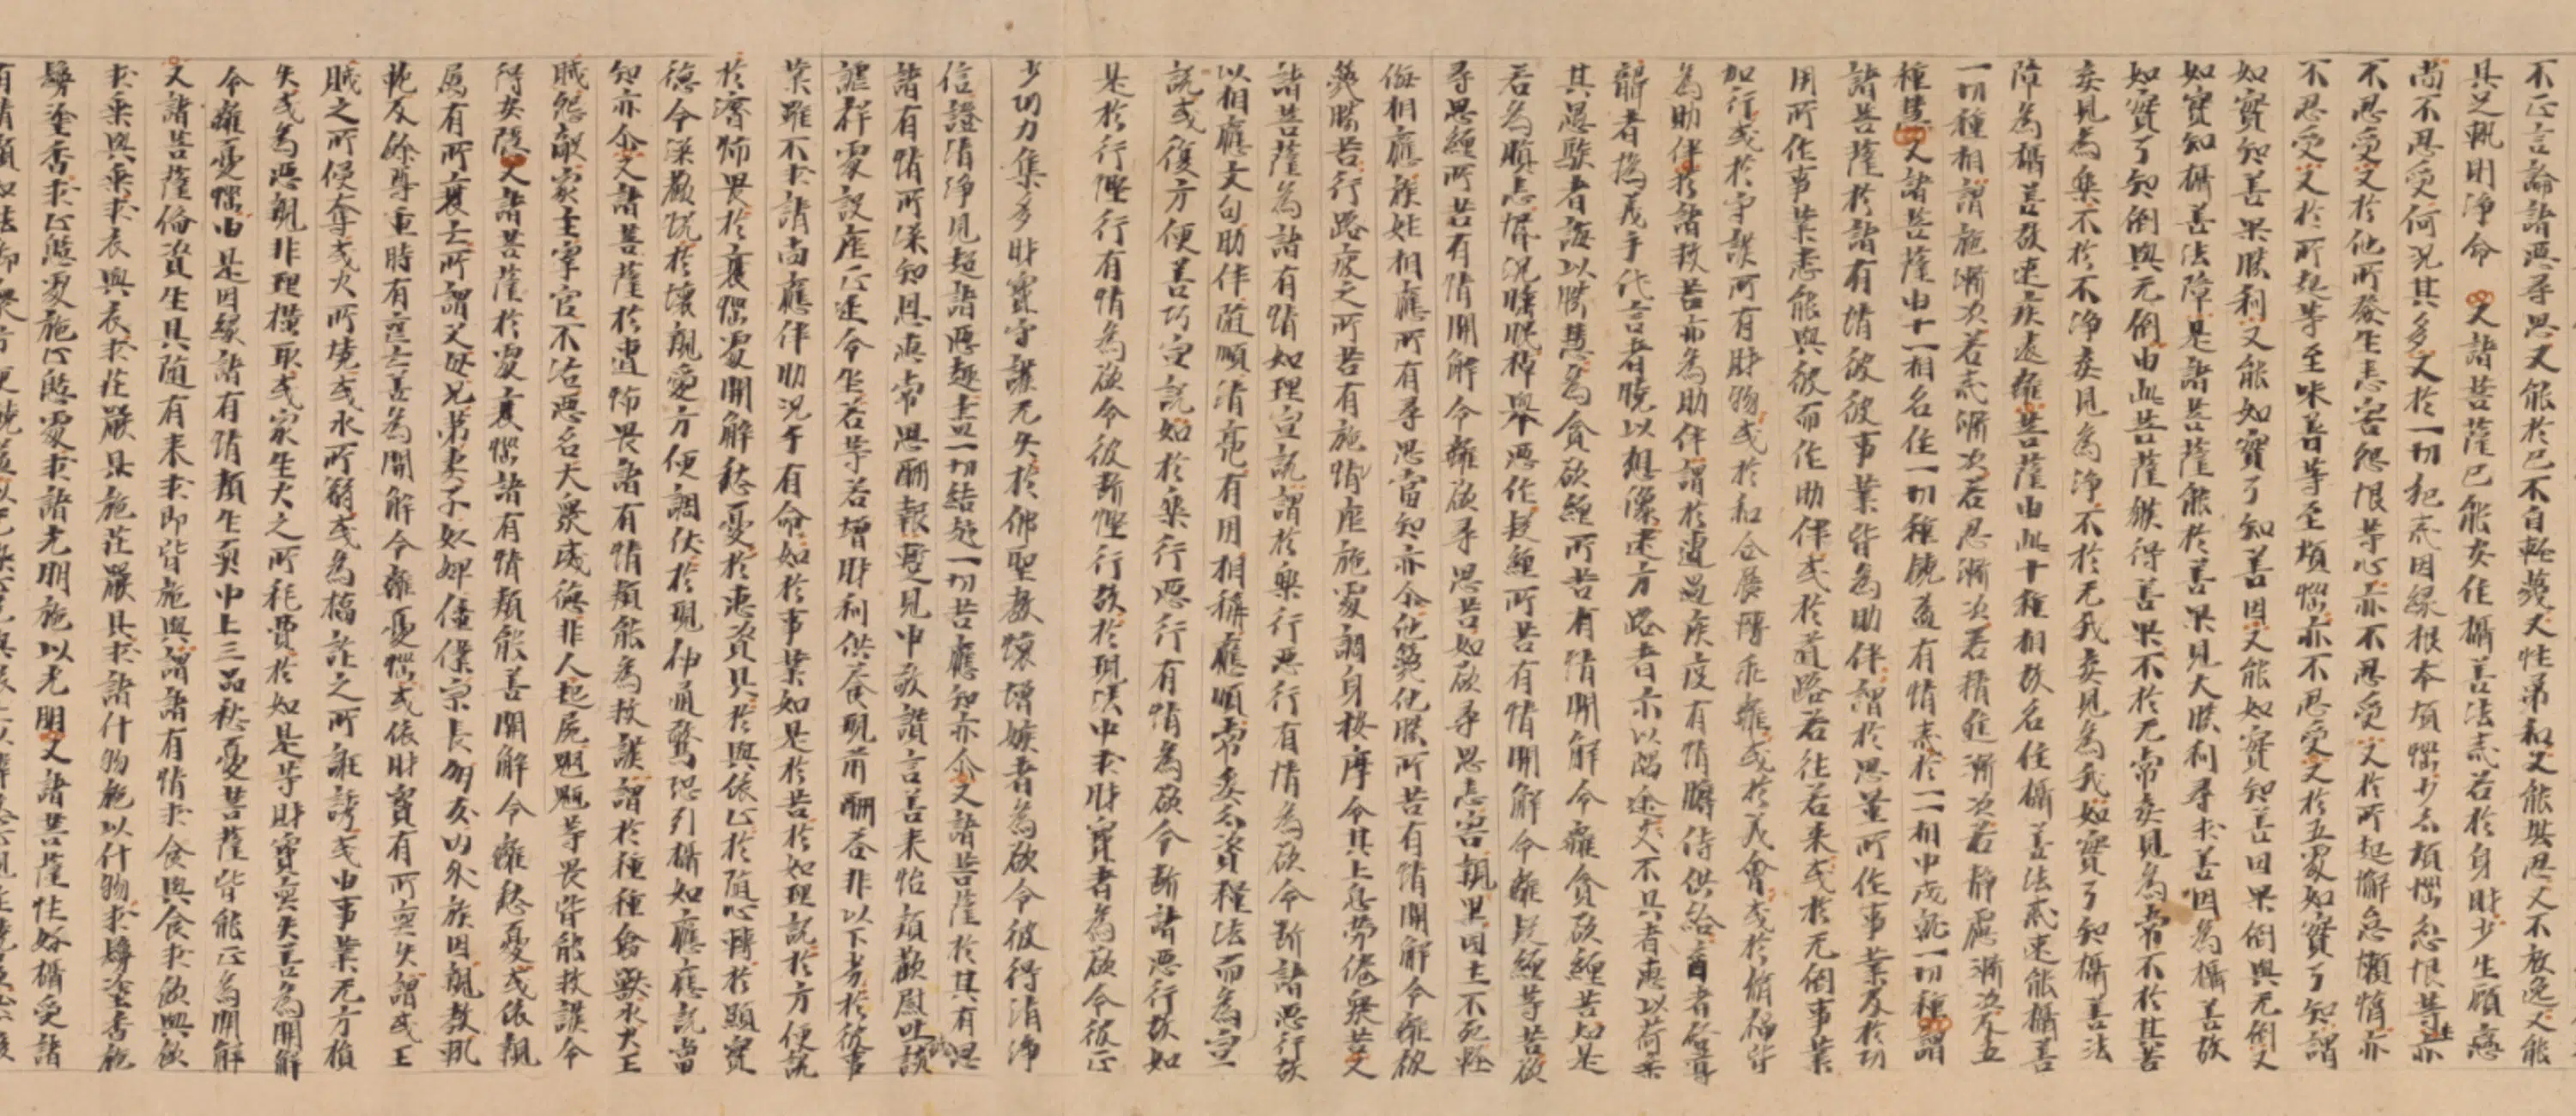 不正言論諸惡尋思又能於己不自輕蔑又性柔和又能堪忍又不放逸又能
具足軌則淨命 又諸菩薩已能安住攝善法戒若於身財少生顧戀
尚不忍受何況其多又於一切犯戒因緣根本煩惱少分煩惱忿恨等生亦
不忍受又於他所發生恚害怨恨等心亦不忍受又於所起懈怠懶惰亦
不忍受又於所起等至味著等至煩惱亦不忍受又於五處如實了知謂
如實知善果勝利又能如實了知善因又能如實知善因果倒與无倒又
如實知攝善法障是諸菩薩能於善果見大勝利尋求善因為攝善故
如實了知倒與无倒由此菩薩獲得善果不於无常妄見為常不於其苦
妄見為樂不於不淨妄見為淨不於无我妄見為我如實了知攝善法
障為攝善故速疾遠離菩薩由此十種相故名住攝善法戒速能攝善
一切種相謂施漸次若戒漸次若忍漸次若精進漸次若靜慮漸次及五
種慧又諸菩薩由十一相名住一切種饒益有情戒於一一相中成就一切種謂
諸菩薩於諸有情彼彼事業皆為助伴謂於思量所作事業及於功
用所作事業悉能與彼而作助伴或於道路若往若來或於无倒事業
加行或於守護所有財物或於和合展轉乖離或於義會或於脩福皆
為助伴於諸救苦亦為助伴謂於遭遇疾疫有情瞻侍供給盲者啓導
聾者撝義手代言者曉以想像迷方路者示以隅途支不具者惠以荷乘
其愚騃者誨以勝慧為貪欲纏所苦有情開解令離貪欲纏苦如是
若為瞋恚惛沉睡眠掉舉惡作疑纏所苦有情開解令離疑纏等苦欲
尋思纏所苦有情開解令離欲尋思苦如欲尋思恚害親里國土不死輕
侮相應族姓相應所有尋思當知亦尒他蔑他勝所苦有情開解令離被
蔑勝苦行路疲乏所苦有情施座施處調身按摩令其止息勞倦眾苦又
諸菩薩為諸有情如理宣說謂於樂行惡行有情為欲令斷諸惡行故
以相應文句助伴隨順清亮有用相稱應順常委分資糧法而為宣
說或復方便善巧宣說如於樂行惡行有情為欲令斷諸惡行故如
是於行慳行有情為欲令彼斷慳行故於現法中求財寶者為欲令彼正
少功力集多財寶守護无失於佛聖教懷憎嫉者為欲令彼得清淨
信證清淨見超諸惡趣盡一切結越一切苦應知亦尒又諸菩薩於其有恩
諸有情所深知恩惠常思酬報暫見申敬讚言善來怡顏歡慰吐誠談
謔祥處設座正速令坐若等若增財利供養現前酬荅非以下劣於彼事
業雖不求請尚應伴助況乎有命如於事業如是於苦於如理說於方便說
於濟怖畏於衰惱處開解愁憂於惠資具於與依止於隨心轉於顯實
德令深歡悅於懷親愛方便調伏於現神通驚恐引攝如應廣說當
知亦尒又諸菩薩於遭怖畏諸有情類能為救護謂於種種禽獸水火王
賊怨敵家主宰官不活惡名大眾威德非人起屍魍魎等畏皆能救護令
得安隱又諸菩薩於處衰惱諸有情類能善開解令離愁憂或依親
屬有所衰亡所謂父母兄弟妻子奴婢僮僕宗長朋友內外族因親教軌
範及餘尊重時有喪亡善為開解令離憂惱或依財寶有所喪失謂或王
賊之所侵奪或火所燒或水所溺或為矯詐之所誑誘或由事業无方損
失或為惡親非理橫取或家生火之所耗費於如是等財寶喪失善為開解
令離憂惱由是因緣諸有情類生耎中上三品愁憂菩薩皆能正為開解
又諸菩薩備資生具隨有來求即皆施與謂諸有情求食與食求飲與飲
求乘與乘求衣與衣求莊嚴具施莊嚴具求諸什物施以什物求鬘塗香施
鬘塗香求止憩處施止憩處求諸光明施以光明又諸菩薩性好攝受諸
有情類如法御眾方便饒益以无染心